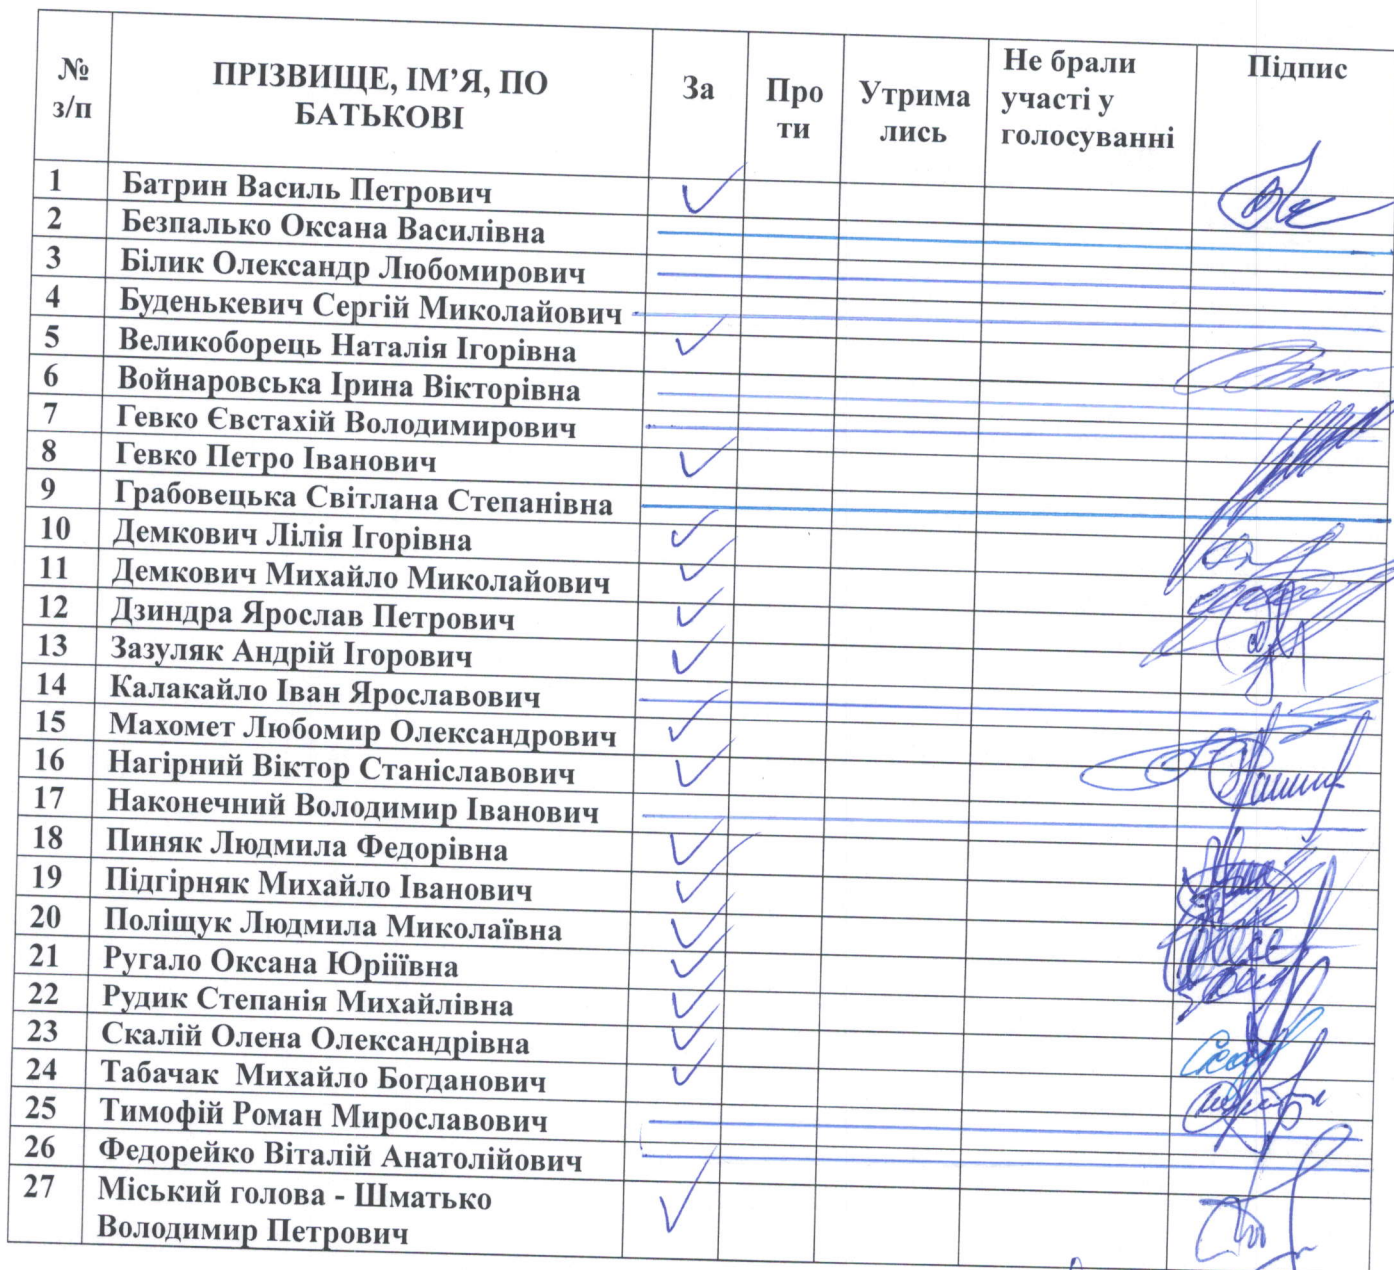 № з/п
ПРІЗВИЩЕ, ІМ’Я, ПО БАТЬКОВІ
За
Про
ти
Утрима
лись
Не брали
участі у
голосуванні
Підпис
1 Батрин Василь Петрович
2 Безпалько Оксана Василівна
3 Білик Олександр Любомирович
4 Буденькевич Сергій Миколайович
5 Великоборець Наталія Ігорівна
6 Войнаровська Ірина Вікторівна
7 Гевко Євстахій Володимирович
8 Гевко Петро Іванович
9 Грабовецька Світлана Степанівна
10 Демкович Лілія Ігорівна
11 Демкович Михайло Миколайович
12 Дзиндра Ярослав Петрович
13 Зазуляк Андрій Ігорович
14 Калакайло Іван Ярославович
15 Махомет Любомир Олександрович
16 Нагірний Віктор Станіславович
17 Наконечний Володимир Іванович
18 Пиняк Людмила Федорівна
19 Підгірняк Михайло Іванович
20 Поліщук Людмила Миколаївна
21 Ругало Оксана Юрііївна
22 Рудик Степанія Михайлівна
23 Скалій Олена Олександрівна
24 Табачак Михайло Богданович
25 Тимофій Роман Мирославович
26 Федорейко Віталій Анатолійович
27 Міський голова - Шматько
Володимир Петрович